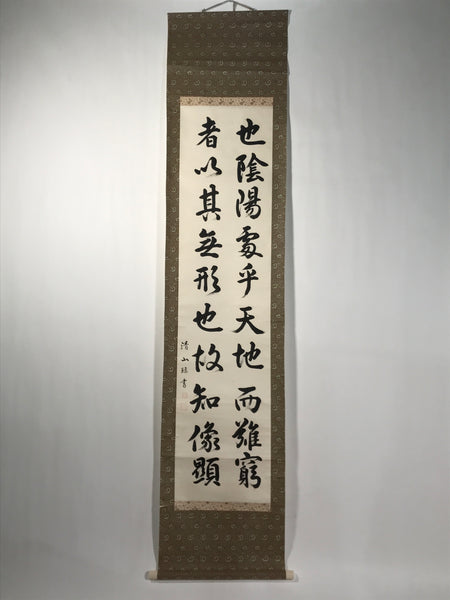 也陰陽處乎天地而難窮
者以其無形也故知像顯
清山
書